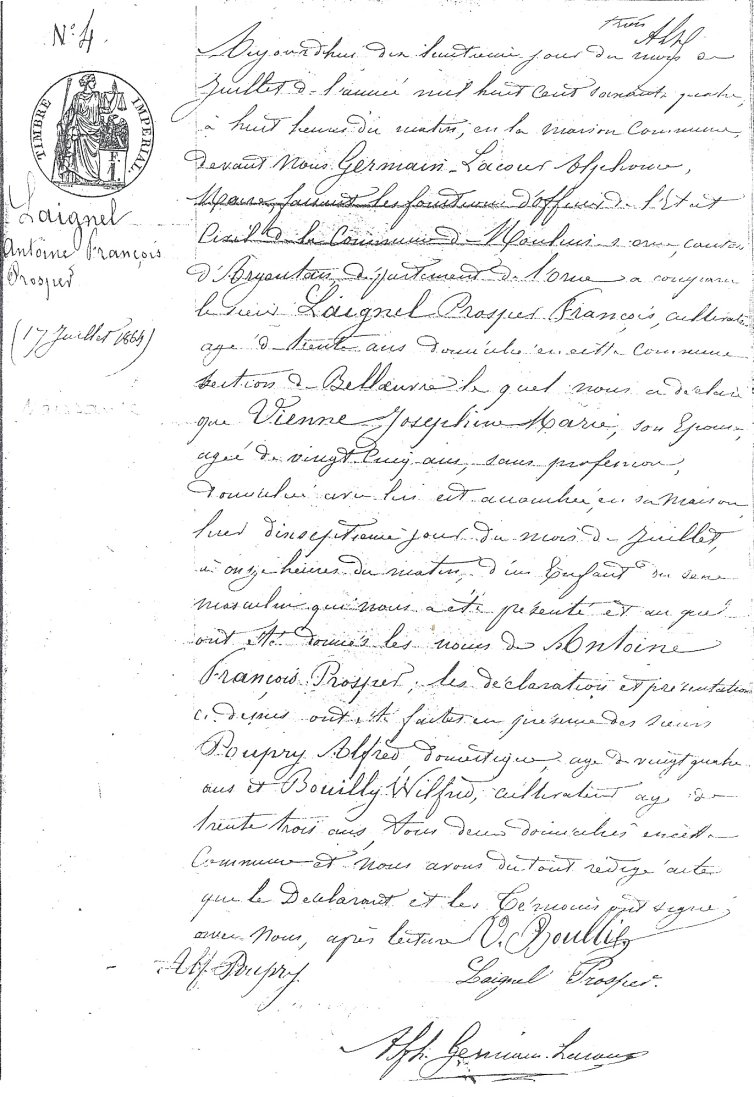 trois Alph
N° 4
TIMBRE IMPERIAL
F. 1.
Laignel
Antoine François
Prosper
(17 Juillet 1864)
Aujourdhui dix huitieme jour du mois de
Juillet de l'année mil huit cent soixante quatre,
à huit heures du matin, en la maison Commune,
devant Nous Germain-Lacour Alphonse,
Maire, faisant les fonctions d'officier de l'Etat
Civil de la Commune de Moulins s orne, canton
d'Argentan, département de l'orne a comparu
le sieur Laignel Prosper François, cultivateur
agé de trente ans domicilié en cette commune
section de Bellœuvre le quel nous a déclaré
que Vienne Joséphine Marie, son Epouse,
agée de vingt Cinq ans, sans profession,
domiciliée avec lui est accouchée, en sa maison,
hier dixseptieme jour du mois de Juillet,
à onze heures du matin, d'un Enfant du sexe
masculin qui nous a été présenté et au quel
ont été donnés les noms de Antoine
François Prosper, les déclaration et présentation
ci dessus ont été faites en présence des sieurs
Poupry Alfred, domestique, agé de vingt quatre
ans et Bouilly Wilfrid, cultivateur agé de
trente trois ans, tous deux domiciliés en cette
Commune et Nous avons du tout rédigé acte
que le Déclarant et les Témoins ont signé
avec Nous, après lecture V. Bouilly
Alf. Poupry Laignel Prosper
Alph. Germain-Lacour